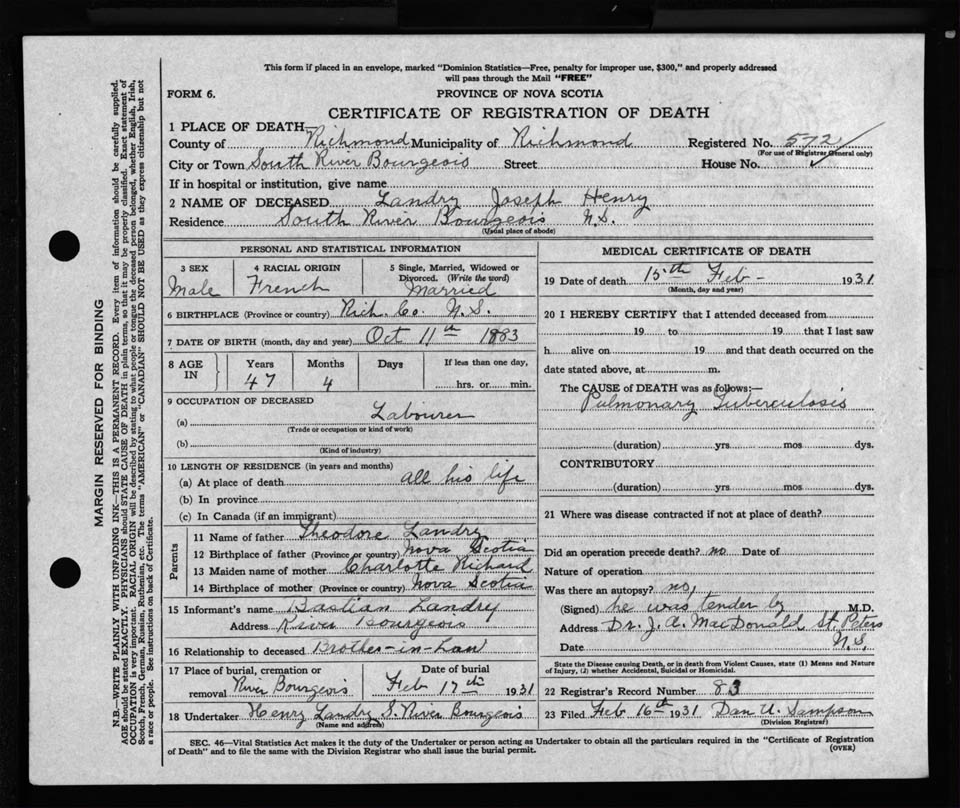 This form if placed in an envelope, marked "Dominion Statistics—Free, penalty for improper use, $300," and properly addressed
will pass through the Mail "FREE"
FORM 6.
PROVINCE OF NOVA SCOTIA
CERTIFICATE OF REGISTRATION OF DEATH
1 PLACE OF DEATH
County of Richmond Municipality of Richmond Registered No. 572
(For use of Registrar General only)
City or Town South River Bourgeois Street House No.
If in hospital or institution, give name
2 NAME OF DECEASED Landry Joseph Henry
Residence South River Bourgeois N.S.
(Usual place of abode)
PERSONAL AND STATISTICAL INFORMATION
3 SEX Male
4 RACIAL ORIGIN French
5 Single, Married, Widowed or
Divorced. (Write the word)
Married
6 BIRTHPLACE (Province or country) Rich. Co. N.S.
7 DATE OF BIRTH (month, day and year) Oct 11th 1883
8 AGE IN
Years Months Days If less than one day,
47 4 hrs. or min.
9 OCCUPATION OF DECEASED
(a) Labourer
(Trade or occupation or kind of work)
(b)
(Kind of industry)
10 LENGTH OF RESIDENCE (in years and months)
(a) At place of death all his life
(b) In province
(c) In Canada (if an immigrant)
Parents
11 Name of father Theodore Landry
12 Birthplace of father (Province or country) Nova Scotia
13 Maiden name of mother Charlotte Richard
14 Birthplace of mother (Province or country) Nova Scotia
15 Informant's name Bastian Landry
Address River Bourgeois
16 Relationship to deceased Brother-in-Law
17 Place of burial, cremation or Date of burial
removal River Bourgeois Feb 17th 1931
18 Undertaker Henry Landry S. River Bourgeois
(Name and address)
MEDICAL CERTIFICATE OF DEATH
19 Date of death 15th Feb - 1931
(Month, day and year)
20 I HEREBY CERTIFY that I attended deceased from
19 to 19 that I last saw
h alive on 19 and that death occurred on the
date stated above, at m.
The CAUSE of DEATH was as follows:—
Pulmonary Tuberculosis
(duration) yrs. mos. dys.
CONTRIBUTORY
(duration) yrs. mos. dys.
21 Where was disease contracted if not at place of death?
Did an operation precede death? no Date of
Nature of operation
Was there an autopsy? no
(Signed) he was tender by M.D.
Address Dr. J. A. MacDonald St. Peters
Date N.S.
State the Disease causing Death, or in death from Violent Causes, state (1) Means and Nature
of Injury, (2) whether Accidental, Suicidal or Homicidal.
22 Registrar's Record Number 83
23 Filed Feb 16th 1931 Dan U. Sampson
(Division Registrar)
SEC. 46—Vital Statistics Act makes it the duty of the Undertaker or person acting as Undertaker to obtain all the particulars required in the "Certificate of Registration
of Death" and to file the same with the Division Registrar who shall issue the burial permit.
(OVER)
MARGIN RESERVED FOR BINDING
N.B.—WRITE PLAINLY WITH UNFADING INK—THIS IS A PERMANENT RECORD. Every item of information should be carefully supplied.
AGE should be stated EXACTLY. PHYSICIANS should STATE CAUSE OF DEATH in plain terms, so that it may be properly classified. Exact statement of
OCCUPATION is very important. RACIAL ORIGIN will be described by stating to what people or tongue the deceased person belonged, whether English, Irish,
Scotch, French, German, Russian, Ruthenian, etc. The terms "AMERICAN" or "CANADIAN" SHOULD NOT BE USED as they express citizenship but not
a race or people. See instructions on back of Certificate.